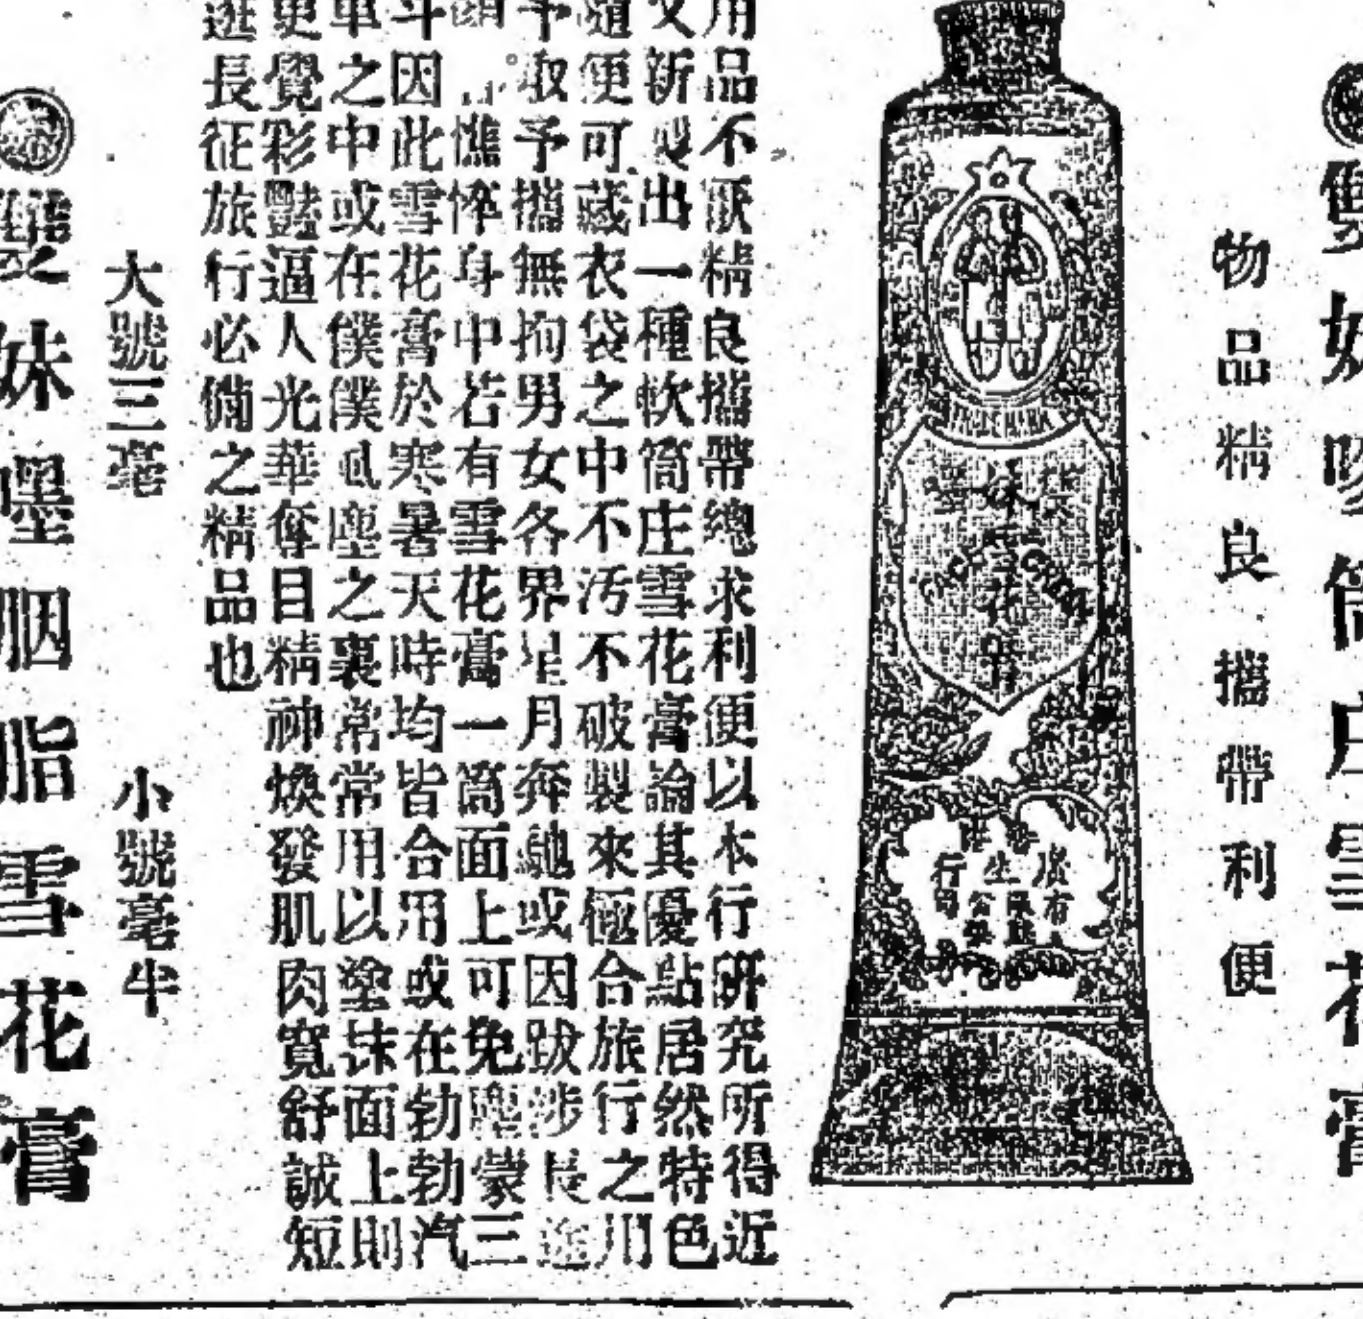 雙妹嘜筒庄雪花膏
物品精良攜帶利便
TRADE MARK
廣生行
有限公司
用品不厭精良攜帶總求利便以本行研究所得近
又新製出一種軟筒庄雪花膏論其優點居然特色
隨便可藏衣袋之中不汚不破製來極合旅行之用
予取予攜無拘男女各界星月奔馳或因跋涉長途
顏憔悴身中若有雪花膏一筒面上可免塵蒙三
斗因此雪花膏於寒暑天時均皆合用或在勃勃汽
車之中或在僕僕風塵之裏常常用以塗抹面上則
更覺彩豔逼人光華奪目精神煥發肌肉寬舒誠短
遊長征旅行必備之精品也
大號三毫 小號毫半
雙妹嚜胭脂雪花膏